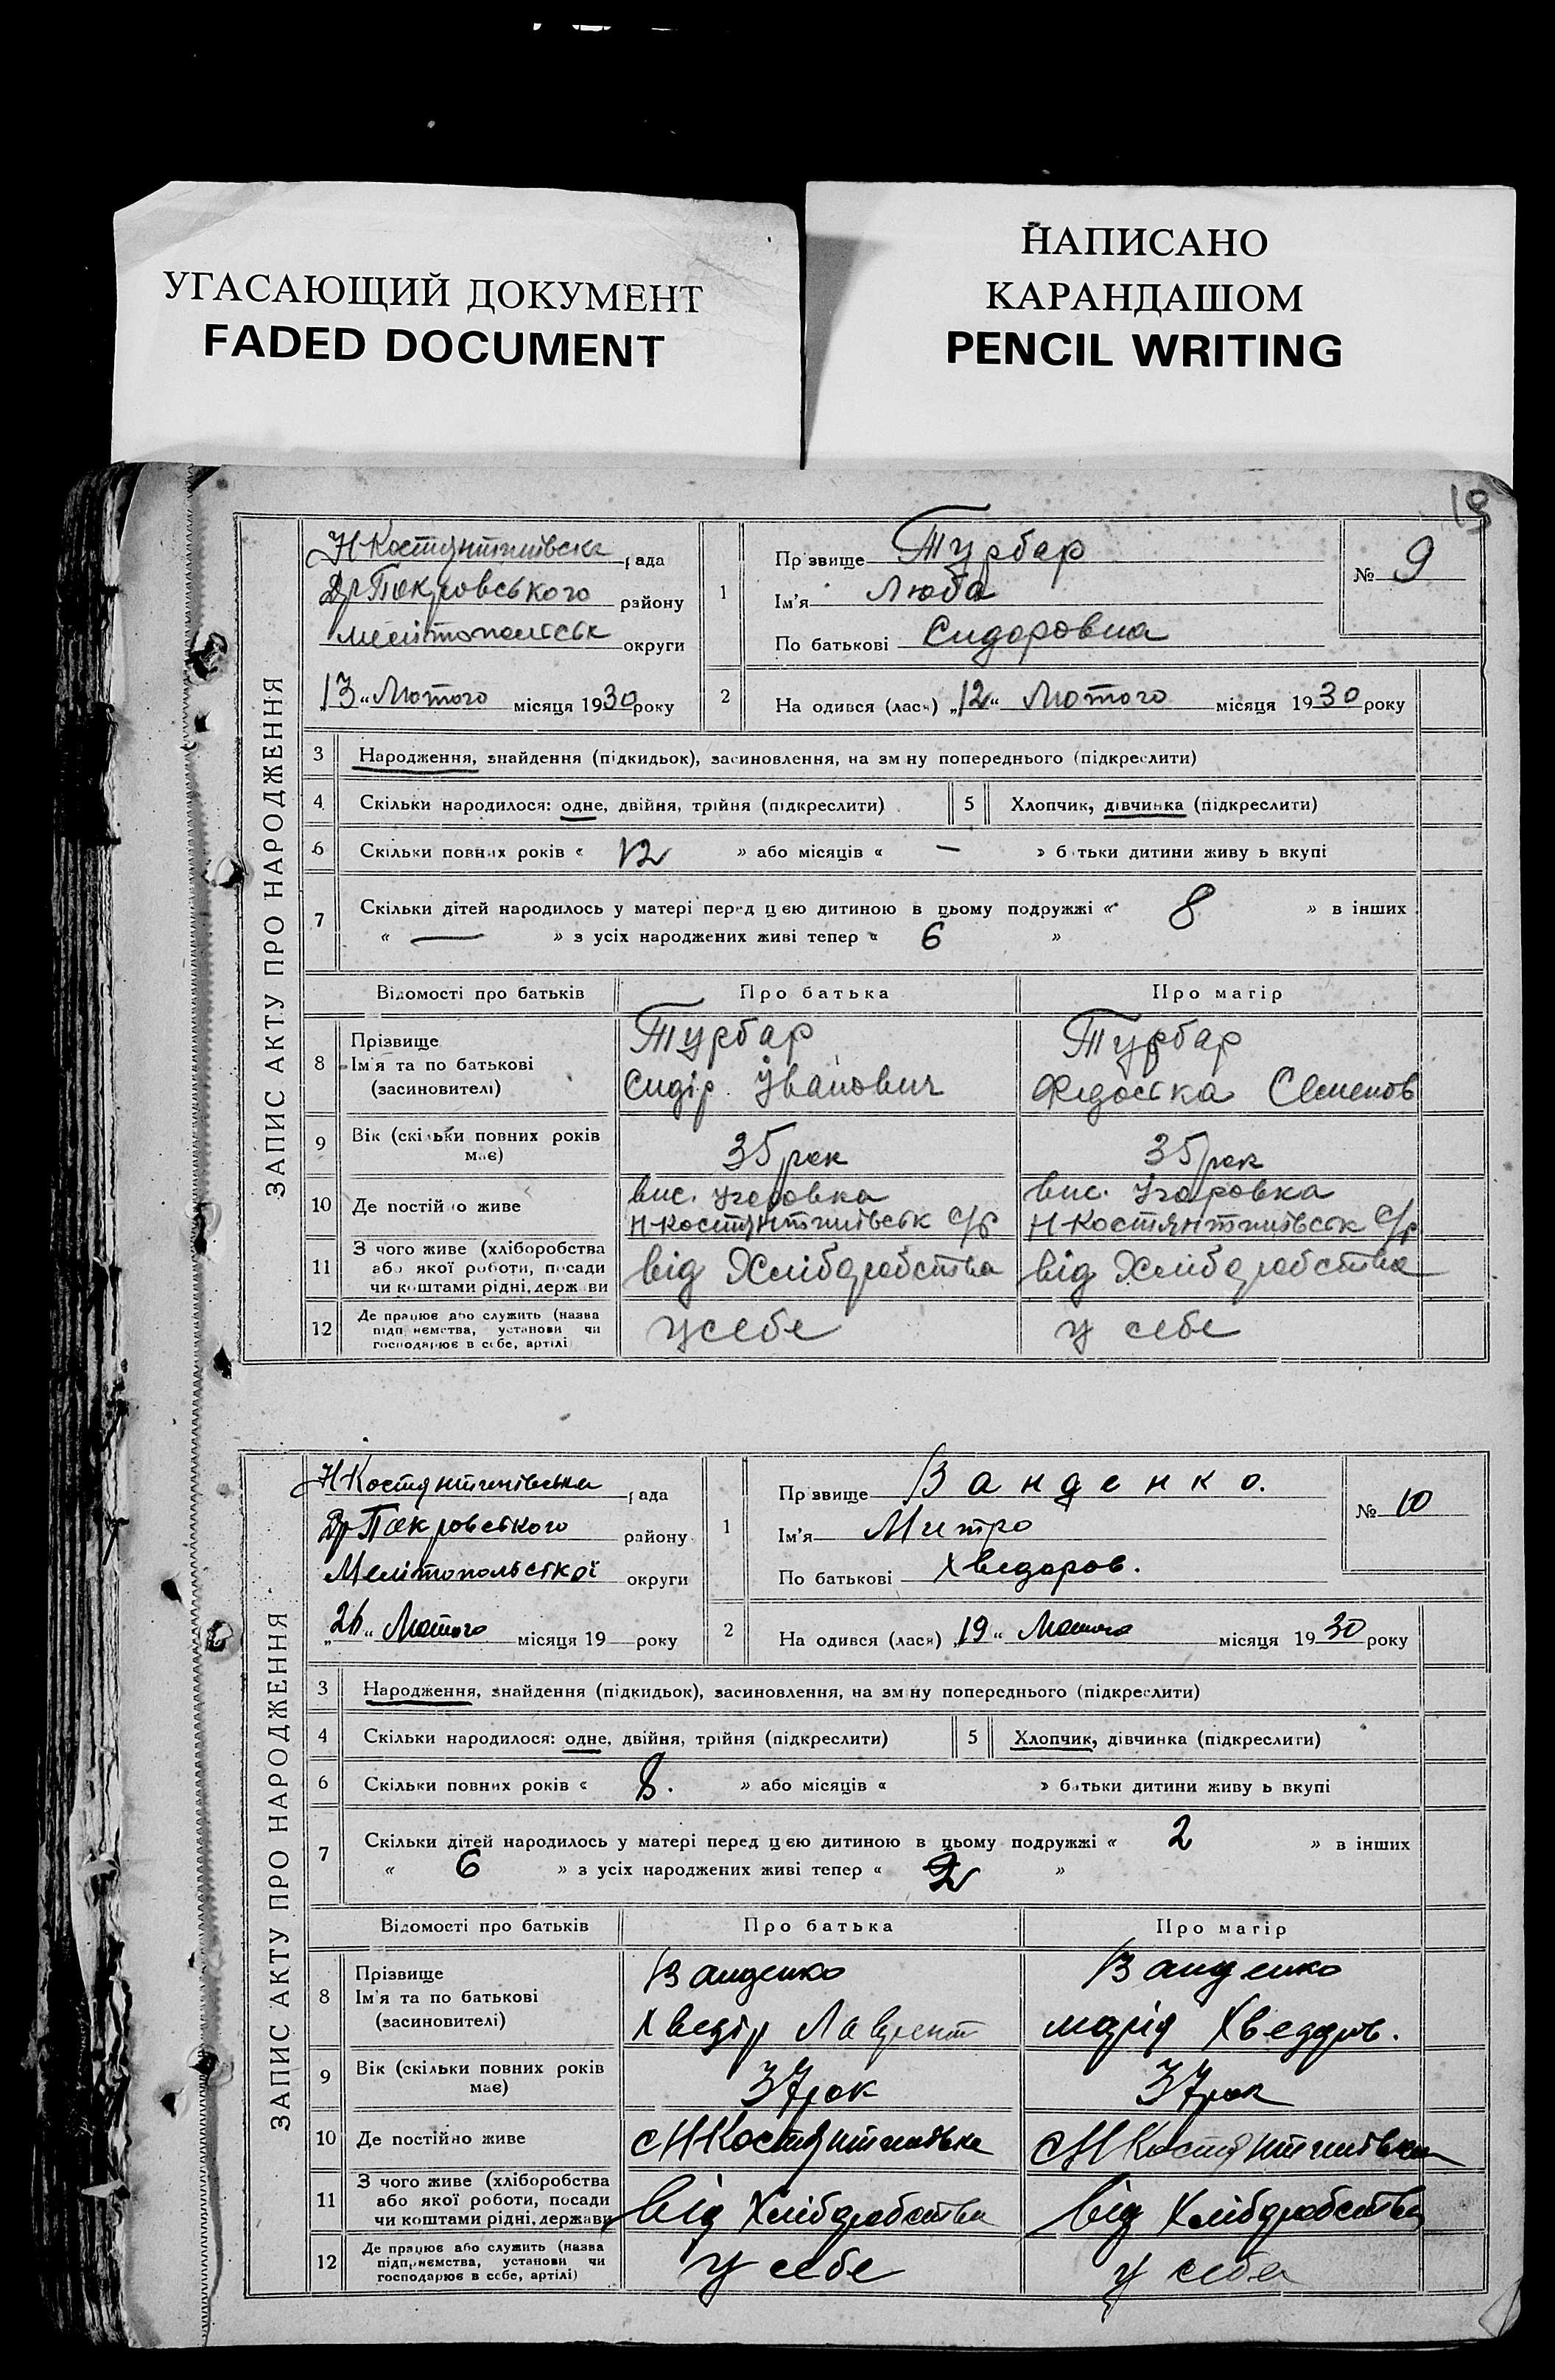 УГАСАЮЩИЙ ДОКУМЕНТ
FADED DOCUMENT
НАПИСАНО
КАРАНДАШОМ
PENCIL WRITING
ЗАПИС АКТУ ПРО НАРОДЖЕННЯ
Н Костянтинівська рада
Др Покровського району
Мелітопольськ округи
13 " Лютого місяця 1930 року
1 Прізвище Турбар
Ім'я Люба
По батькові Сидоровна
№ 9
2 Народився (лась) „12" Лютого місяця 1930 року
3 Народження, знайдення (підкидьок), засиновлення, на зміну попереднього (підкреслити)
4 Скільки народилося: одне, двійня, трійня (підкреслити) 5 Хлопчик, дівчинка (підкреслити)
6 Скільки повних років « 12 » або місяців « — » батьки дитини живуть вкупі
7 Скільки дітей народилось у матері перед цією дитиною в цьому подружжі « 8 » в інших
« — » з усіх народжених живі тепер « 6 »
Відомості про батьків Про батька Про матір
8 Прізвище Турбар Турбар
Ім'я та по батькові Сидір Іванович Федоська Семенов
(засиновителі)
9 Вік (скільки повних років має) 35 рок 35 рок
10 Де постійно живе вис. Угаровка вис. Угаровка
Н-Костянтинівськ с/р Н-Костянтинівськ с/р
11 З чого живе (хліборобства
або якої роботи, посади від Хліборобства від Хліборобства
чи коштами рідні, держави
12 Де працює або служить (назва
підприємства, установи чи у себе у себе
господарює в себе, артілі)
ЗАПИС АКТУ ПРО НАРОДЖЕННЯ
Н Костянтинівська рада
Др Покровського району
Мелітопольської округи
„26" Лютого місяця 19 року
1 Прізвище Ванденко.
Ім'я Митро
По батькові Хведоров.
№ 10
2 Народився (лася) „19" Лютого місяця 1930 року
3 Народження, знайдення (підкидьок), засиновлення, на зміну попереднього (підкреслити)
4 Скільки народилося: одне, двійня, трійня (підкреслити) 5 Хлопчик, дівчинка (підкреслити)
6 Скільки повних років « 8. » або місяців « » батьки дитини живуть вкупі
7 Скільки дітей народилось у матері перед цією дитиною в цьому подружжі « 2 » в інших
« 6 » з усіх народжених живі тепер « 2 »
Відомості про батьків Про батька Про матір
8 Прізвище Ванденко Ванденко
Ім'я та по батькові Хведір Лаврент марія Хведоров.
(засиновителі)
9 Вік (скільки повних років має) 37 рок 37 рок
10 Де постійно живе с Н Костянтинівка с Н Костянтинівка
11 З чого живе (хліборобства
або якої роботи, посади від Хліборобства від Хліборобства
чи коштами рідні, держави
12 Де працює або служить (назва
підприємства, установи чи у себе у себе
господарює в себе, артілі)